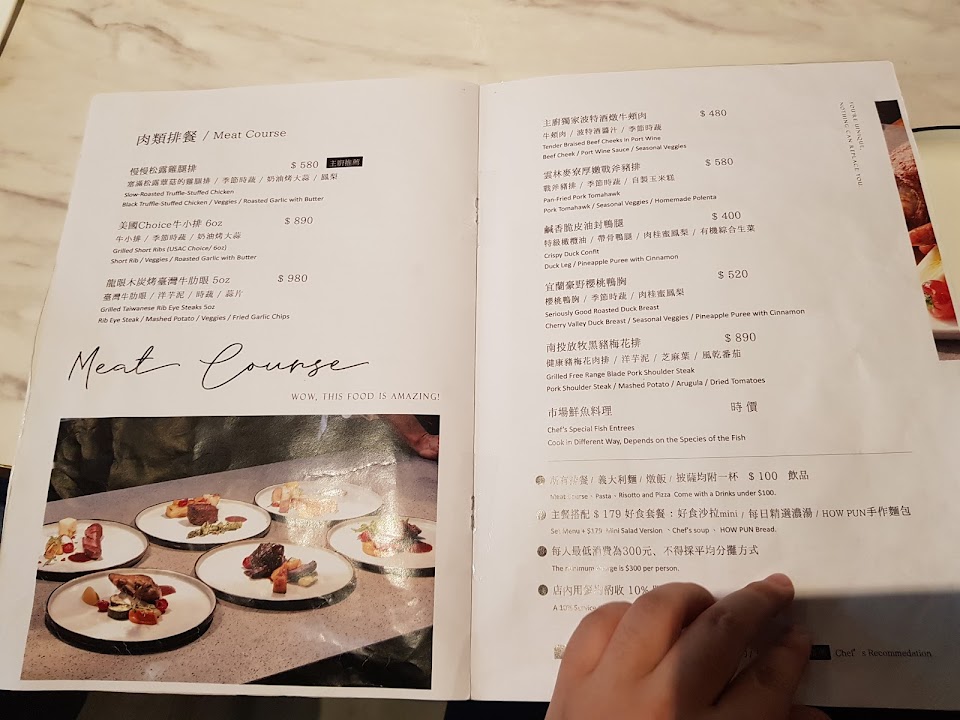 肉類排餐 / Meat Course
慢慢松露雞腿排 $ 580 主廚推薦
塞滿松露蕈菇的雞腿排 / 季節時蔬 / 奶油烤大蒜 / 鳳梨
Slow-Roasted Truffle-Stuffed Chicken
Black Truffle-Stuffed Chicken / Veggies / Roasted Garlic with Butter
美國Choice牛小排 6oz $ 890
牛小排 / 季節時蔬 / 奶油烤大蒜
Grilled Short Ribs (USAC Choice/ 6oz)
Short Rib / Veggies / Roasted Garlic with Butter
龍眼木炭烤臺灣牛肋眼 5oz $ 980
臺灣牛肋眼 / 洋芋泥 / 時蔬 / 蒜片
Grilled Taiwanese Rib Eye Steaks 5oz
Rib Eye Steak / Mashed Potato / Veggies / Fried Garlic Chips
Meat Course
WOW, THIS FOOD IS AMAZING!
主廚獨家波特酒燉牛頰肉 $ 480
牛頰肉 / 波特酒醬汁 / 季節時蔬
Tender Braised Beef Cheeks in Port Wine
Beef Cheek / Port Wine Sauce / Seasonal Veggies
雲林麥寮厚嫩戰斧豬排 $ 580
戰斧豬排 / 季節時蔬 / 自製玉米糕
Pan-Fried Pork Tomahawk
Pork Tomahawk / Seasonal Veggies / Homemade Polenta
鹹香脆皮油封鴨腿 $ 400
特級橄欖油 / 帶骨鴨腿 / 肉桂蜜鳳梨 / 有機綜合生菜
Crispy Duck Confit
Duck Leg / Pineapple Puree with Cinnamon
宜蘭豪野櫻桃鴨胸 $ 520
櫻桃鴨胸 / 季節時蔬 / 肉桂蜜鳳梨
Seriously Good Roasted Duck Breast
Cherry Valley Duck Breast / Seasonal Veggies / Pineapple Puree with Cinnamon
南投放牧黑豬梅花排 $ 890
健康豬梅花肉排 / 洋芋泥 / 芝麻葉 / 風乾番茄
Grilled Free Range Blade Pork Shoulder Steak
Pork Shoulder Steak / Mashed Potato / Arugula / Dried Tomatoes
市場鮮魚料理 時價
Chef's Special Fish Entrees
Cook in Different Way, Depends on the Species of the Fish
YOU'RE UNIQUE,
NOTHING CAN REPLACE YOU
排餐 / 義大利麵 / 燉飯 / 披薩均附一杯 $ 100 飲品
Meat Course、Pasta、Risotto and Pizza Come with a Drinks under $100.
主餐搭配 $ 179 好食套餐：好食沙拉mini / 每日精選濃湯 / HOW PUN手作麵包
Set Menu + $179 Mini Salad Version 、Chef's soup 、 HOW PUN Bread.
每人最低消費為300元、不得採平均分攤方式
The minimum charge is $300 per person.
店內用餐 酌收 10%
A 10% Service
Chef's Recommedetion